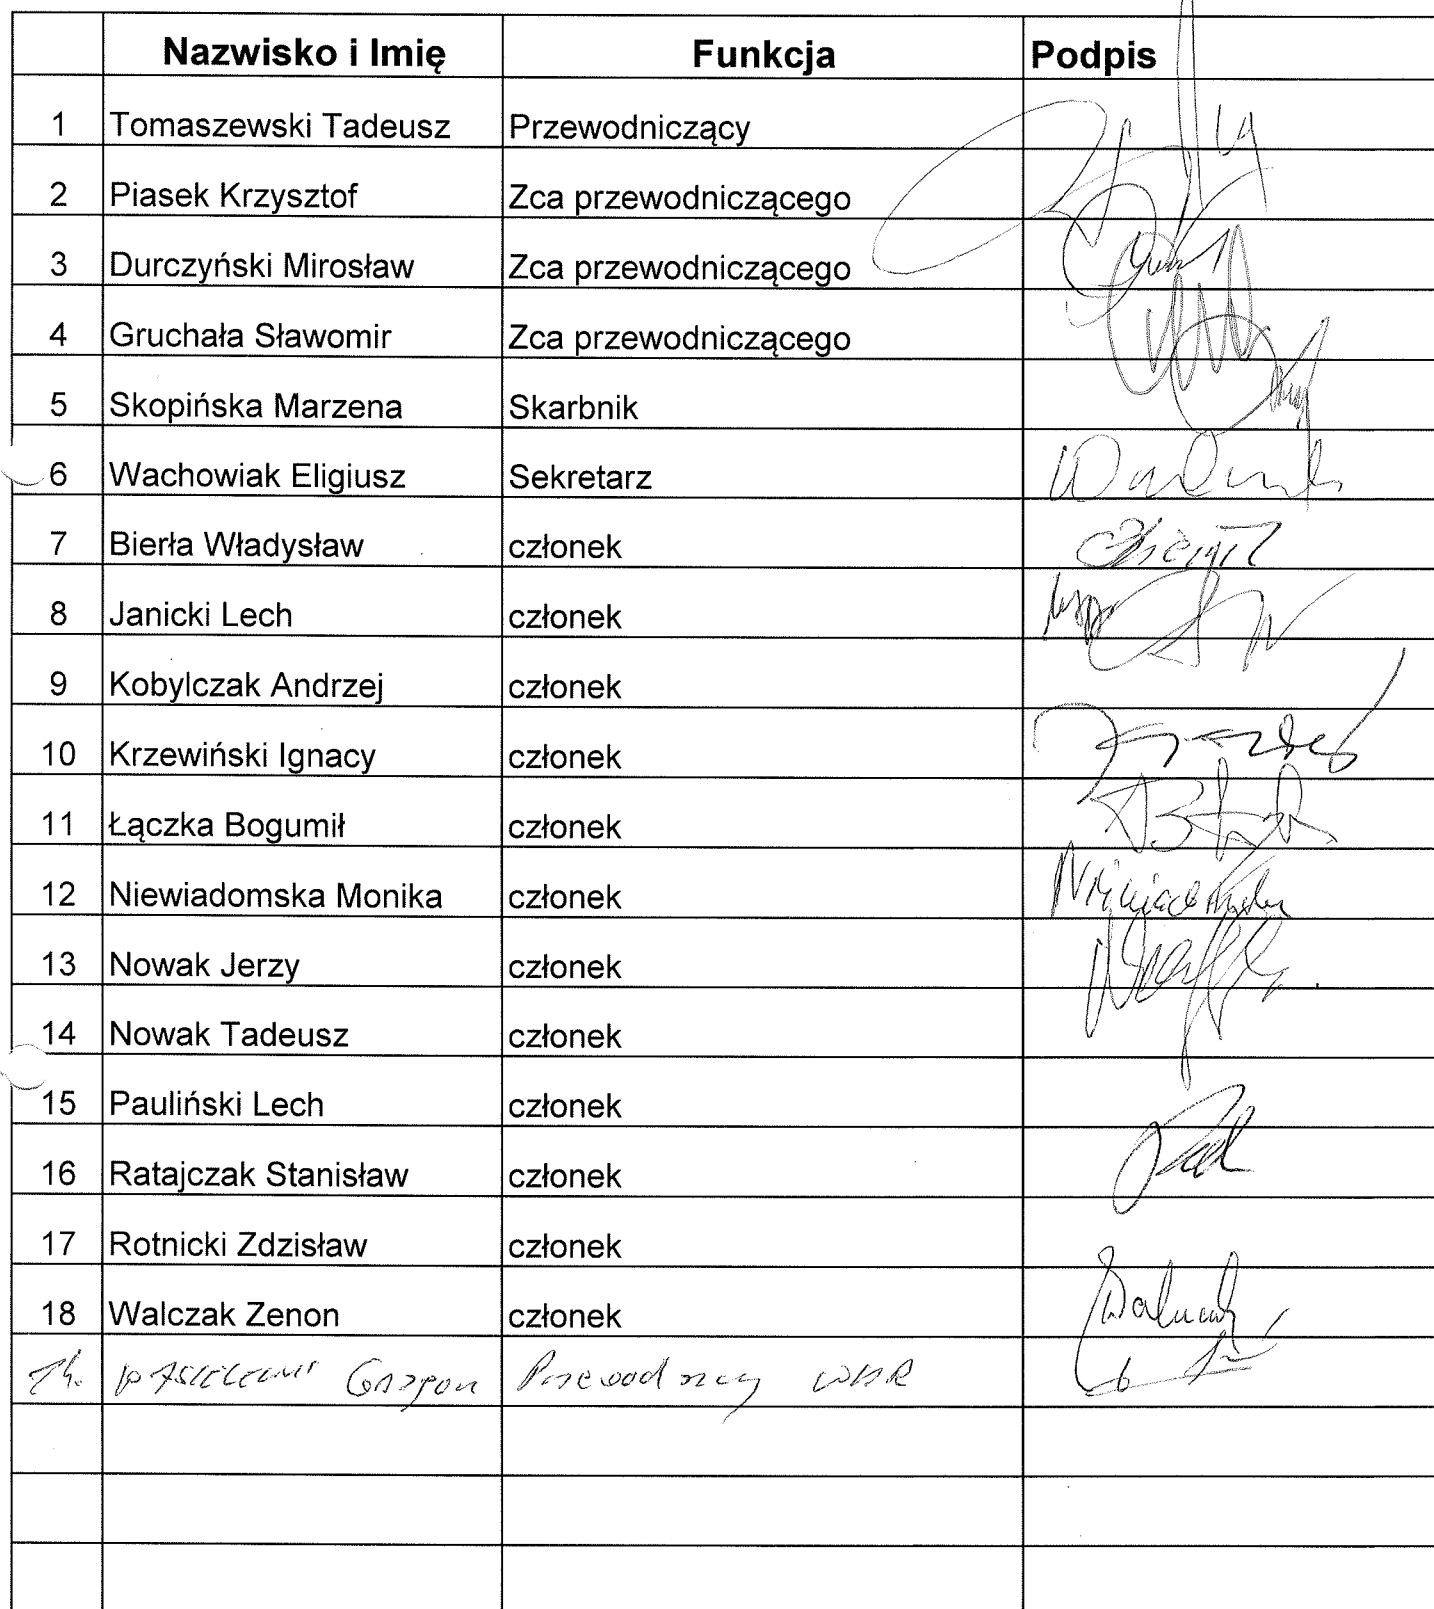 Nazwisko i Imię Funkcja Podpis
1 Tomaszewski Tadeusz Przewodniczący
2 Piasek Krzysztof Zca przewodniczącego
3 Durczyński Mirosław Zca przewodniczącego
4 Gruchała Sławomir Zca przewodniczącego
5 Skopińska Marzena Skarbnik
6 Wachowiak Eligiusz Sekretarz
7 Bierła Władysław członek
8 Janicki Lech członek
9 Kobylczak Andrzej członek
10 Krzewiński Ignacy członek
11 Łączka Bogumił członek
12 Niewiadomska Monika członek
13 Nowak Jerzy członek
14 Nowak Tadeusz członek
15 Pauliński Lech członek
16 Ratajczak Stanisław członek
17 Rotnicki Zdzisław członek
18 Walczak Zenon członek